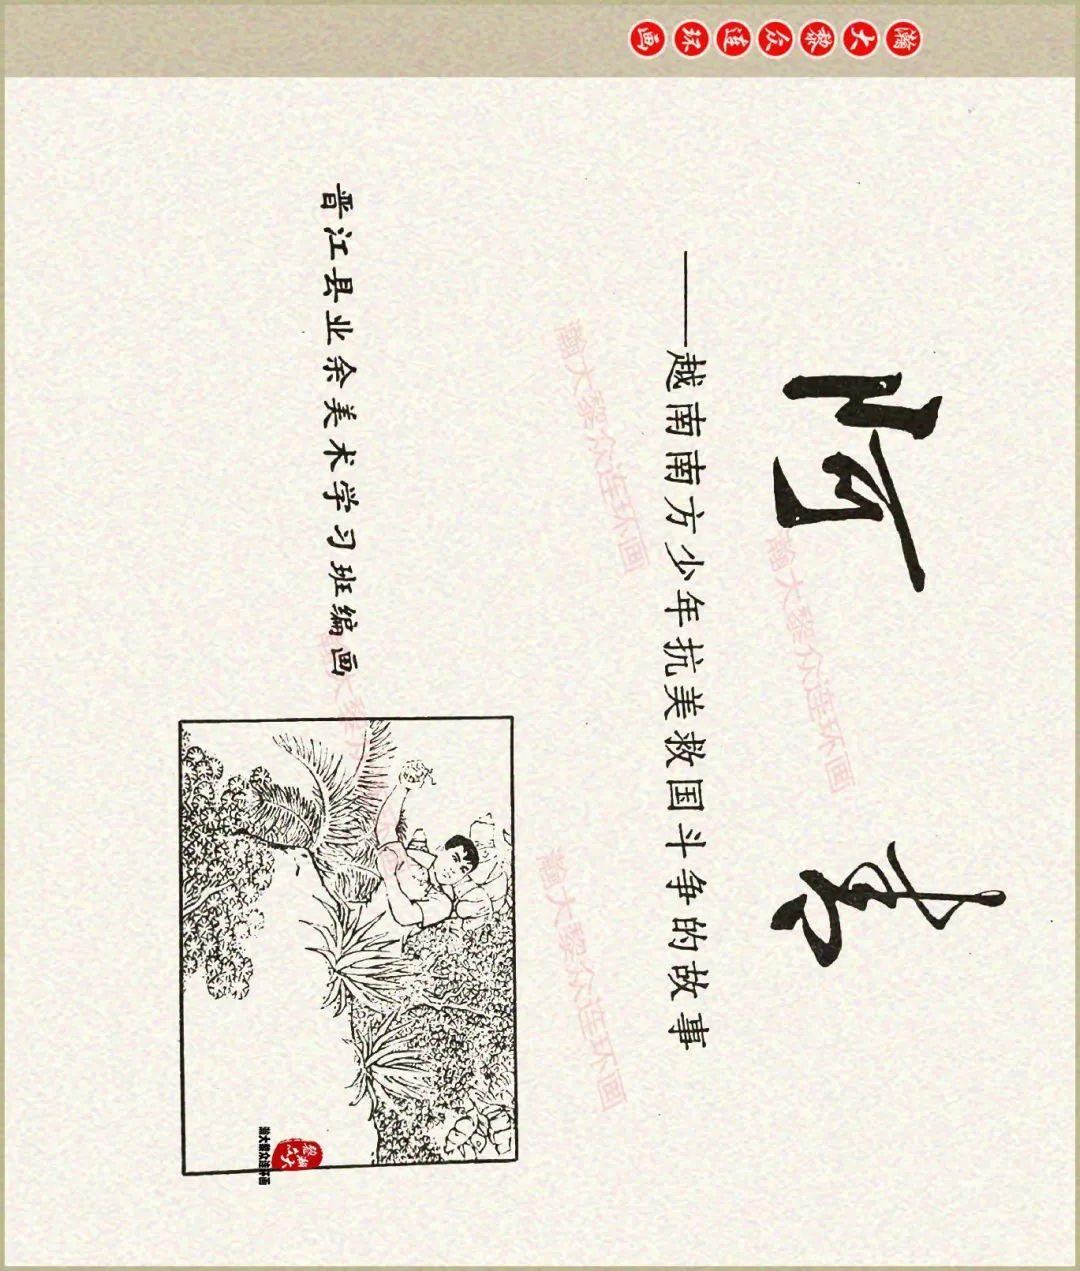 瀚大黎众連环画
阿
——越南南方少年抗美救国斗争的故事
晋江县业余美术学习班编画
瀚大黎众连环画
瀚大黎众连环画
瀚大黎众连环画
瀚大黎众连环画